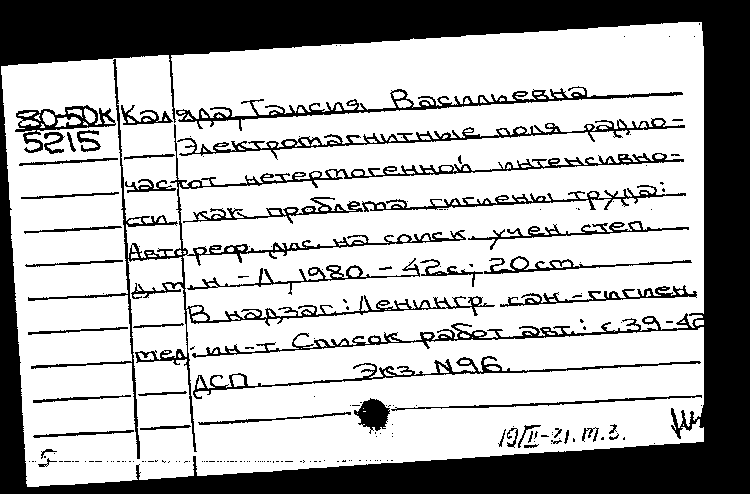 80-50К Каляда, Таисия Васильевна.
5215 Электромагнитные поля радио-
частот нетермогенной интенсивно-
сти как проблема гигиены труда:
Автореф. дис. на соиск. учен. степ.
д.м.н. - Л., 1980. - 42с.; 20см.
В надзаг.: Ленингр. сан.-гигиен.
мед. ин-т. Список работ авт.: с.39-42
ДСП. Экз. N96.
19/II-81. м.з.
5